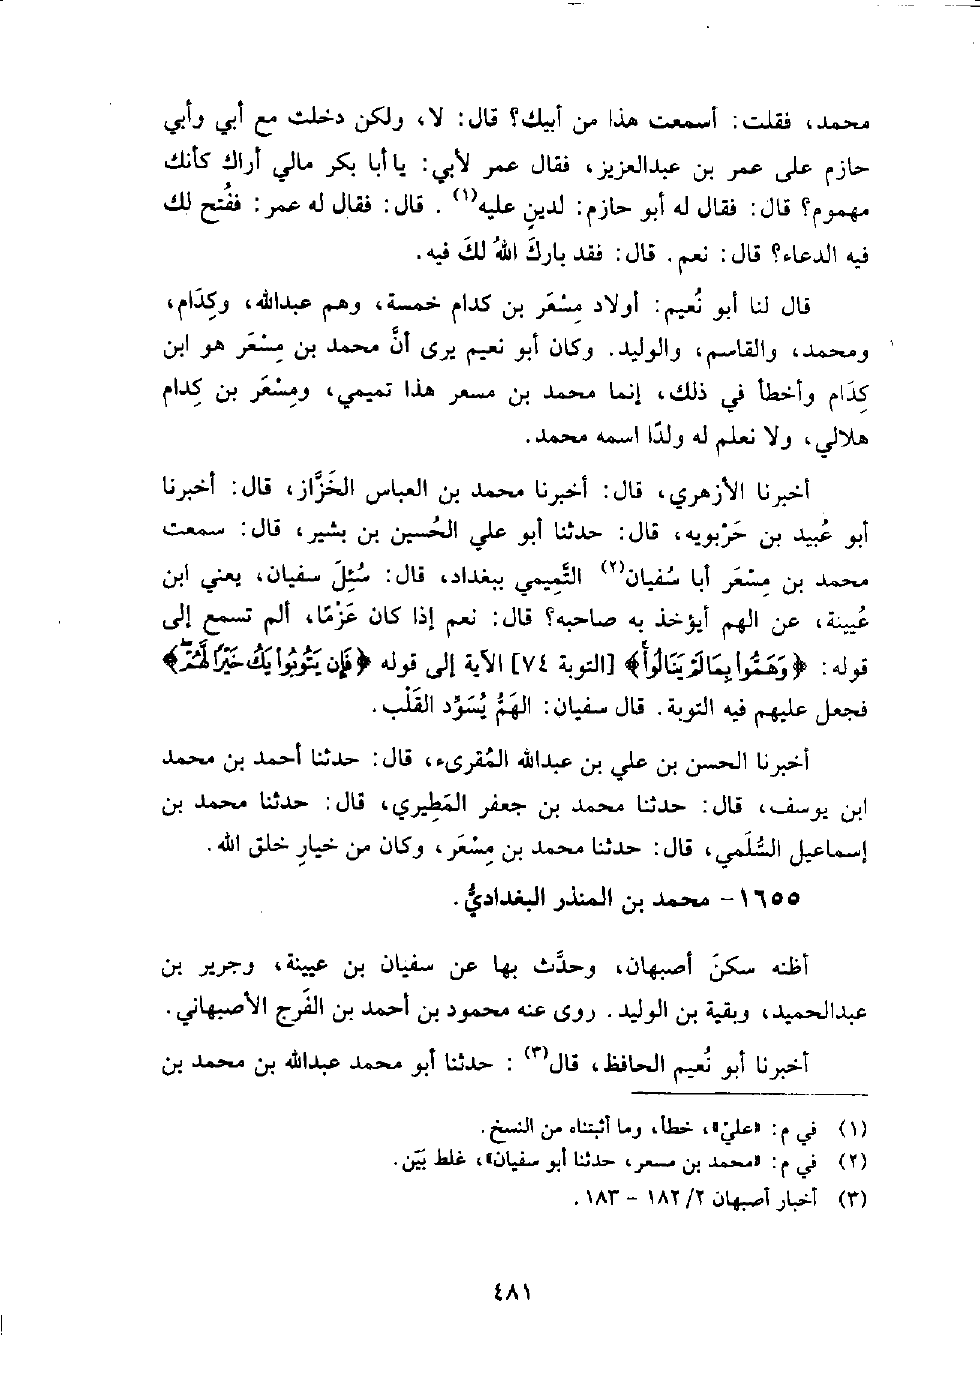 محمد، فقلت: أسمعت هذا من أبيك؟ قال: لا، ولكن دخلت مع أبي وأبي
حازم على عمر بن عبدالعزيز، فقال عمر لأبي: يا أبا بكر مالي أراك كأنك
مهموم؟ قال: فقال له أبو حازم: لدينٍ عليه(١). قال: فقال له عمر: ففُتح لك
فيه الدعاء؟ قال: نعم. قال: فقد باركَ اللهُ لكَ فيه.
قال لنا أبو نُعيم: أولاد مِسْعَر بن كدام خمسة، وهم عبدالله، وكِدَام،
ومحمد، والقاسم، والوليد. وكان أبو نعيم يرى أنَّ محمد بن مِسْعَر هو ابن
كِدَام وأخطأ في ذلك، إنما محمد بن مسعر هذا تميمي، ومِسْعَر بن كِدام
هلالي، ولا نعلم له ولدًا اسمه محمد.
أخبرنا الأزهري، قال: أخبرنا محمد بن العباس الخَزَّاز، قال: أخبرنا
أبو عُبيد بن حَرْبويه، قال: حدثنا أبو علي الحُسين بن بشير، قال: سمعت
محمد بن مِسْعَر أبا سُفيان(٢) التَّمِيمي ببغداد، قال: سُئِلَ سفيان، يعني ابن
عُيينة، عن الهم أيؤخذ به صاحبه؟ قال: نعم إذا كان عَزْمًا، ألم تسمع إلى
قوله: ﴿وَهَمُّوا بِمَا لَمْ يَنَالُواْ﴾ [التوبة ٧٤] الآية إلى قوله ﴿فَإِن يَتُوبُواْ يَكُ خَيْرًا لَّهُمْ﴾
فجعل عليهم فيه التوبة. قال سفيان: الهَمُّ يُسَوِّد القَلْب.
أخبرنا الحسن بن علي بن عبدالله المُقرىء، قال: حدثنا أحمد بن محمد
ابن يوسف، قال: حدثنا محمد بن جعفر المَطِيري، قال: حدثنا محمد بن
إسماعيل السُّلَمي، قال: حدثنا محمد بن مِسْعَر، وكان من خيارِ خلق الله.
١٦٥٥- محمد بن المنذر البغداديُّ.
أظنه سكنَ أصبهان، وحدَّث بها عن سفيان بن عيينة، وجرير بن
عبدالحميد، وبقية بن الوليد. روى عنه محمود بن أحمد بن الفَرج الأصبهاني.
أخبرنا أبو نُعيم الحافظ، قال(٣): حدثنا أبو محمد عبدالله بن محمد بن
(١) في م: «عليّ»، خطأ، وما أثبتناه من النسخ.
(٢) في م: «محمد بن مسعر، حدثنا أبو سفيان»، غلط بَيّن.
(٣) أخبار أصبهان ٢/ ١٨٢ - ١٨٣.
٤٨١